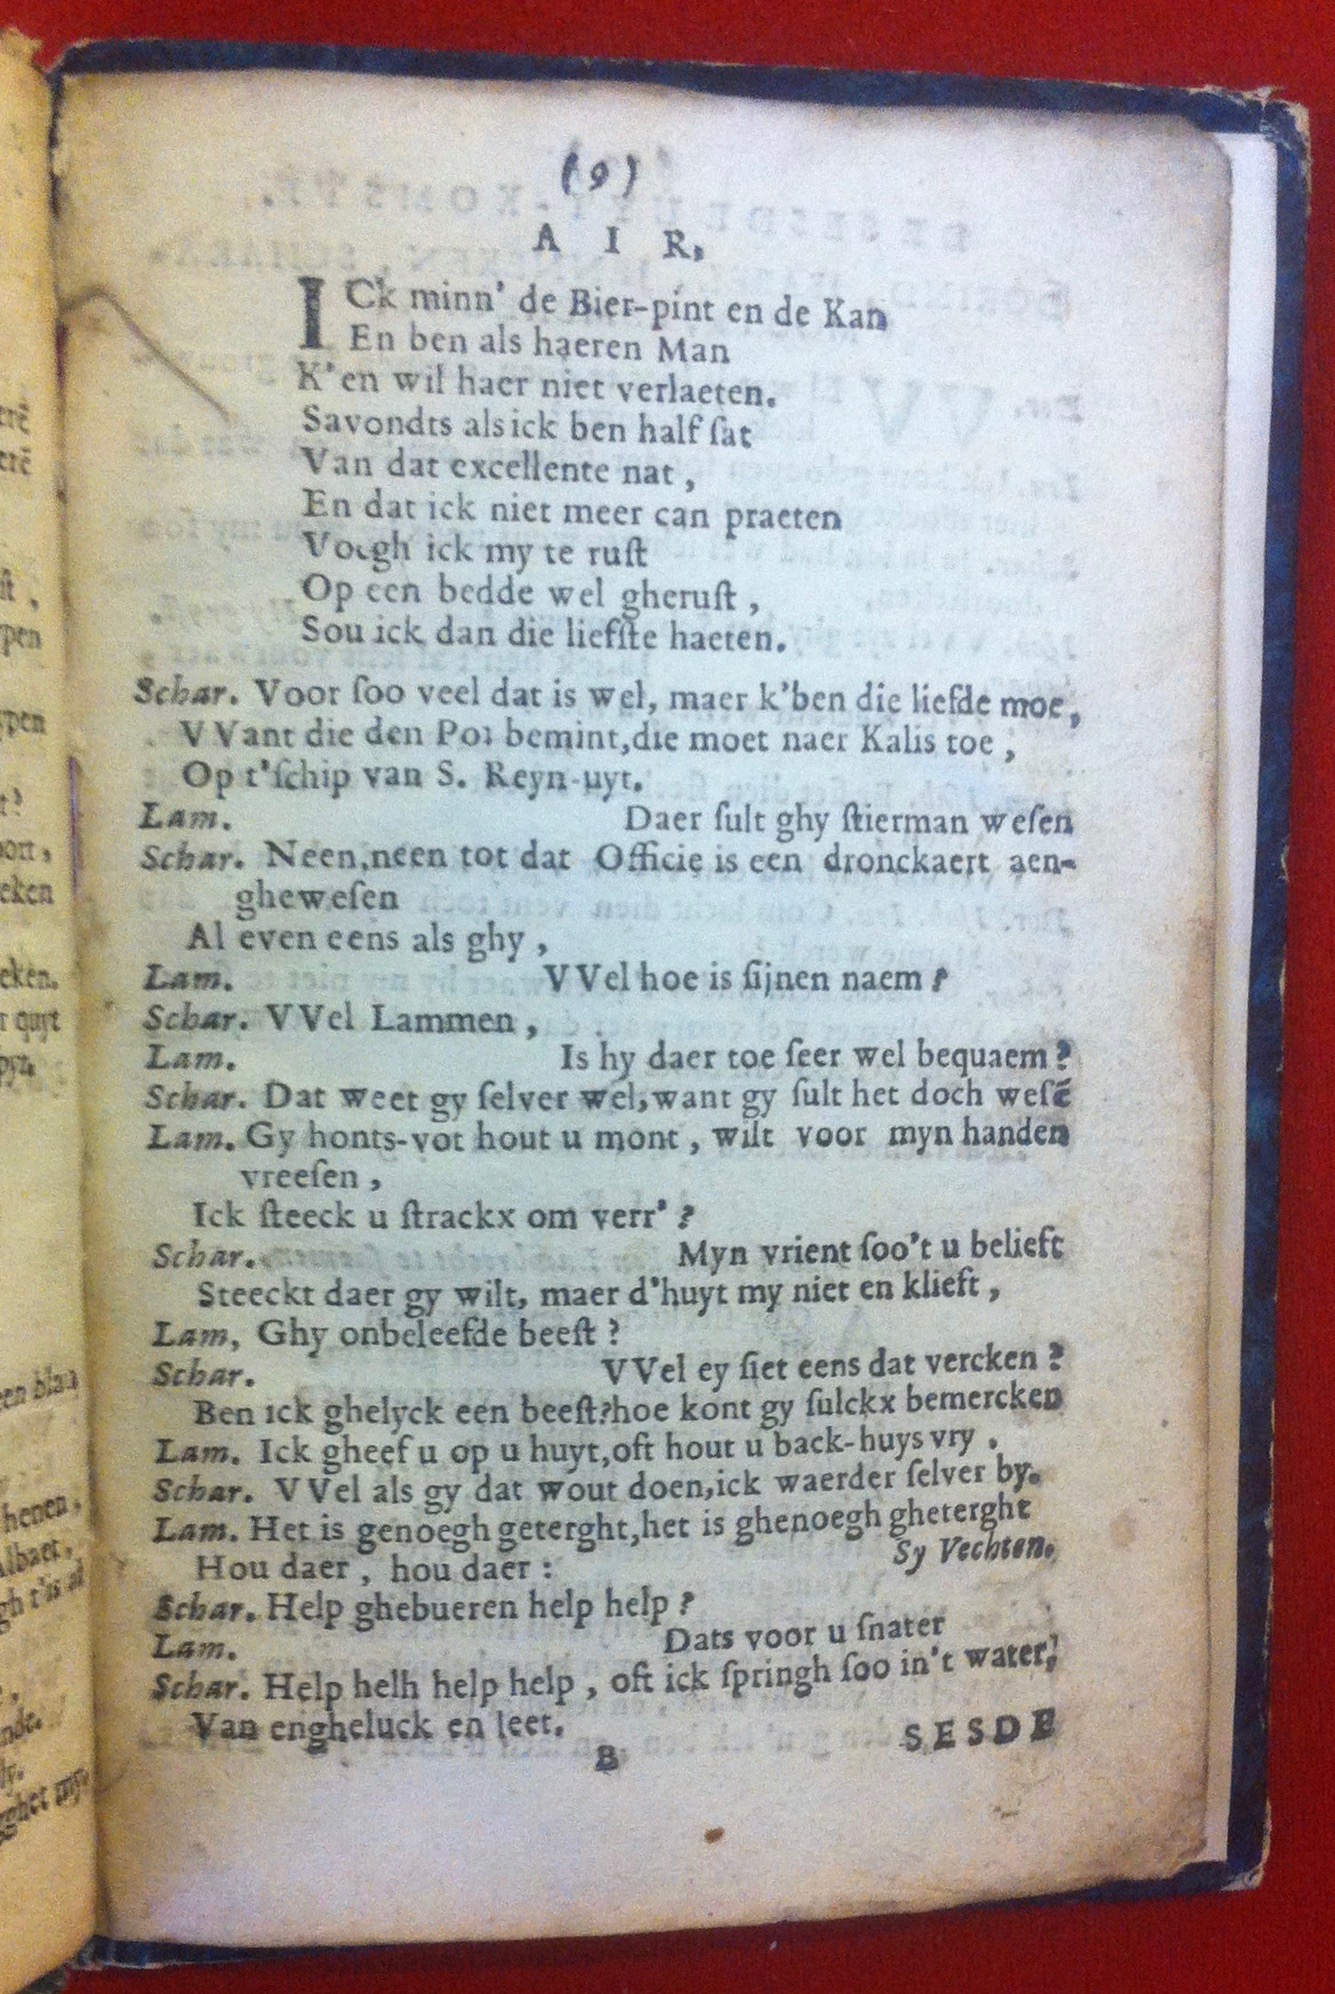 (9)
A I R,
ICk minn' de Bier-pint en de Kan
En ben als haeren Man
K'en wil haer niet verlaeten.
Savondts als ick ben half ſat
Van dat excellente nat,
En dat ick niet meer can praeten
Voegh ick my te ruſt
Op een bedde wel gheruſt,
Sou ick dan die liefſte haeten.
Schar. Voor ſoo veel dat is wel, maer k'ben die liefde moe,
VVant die den Pot bemint, die moet naer Kalis toe,
Op t'ſchip van S. Reyn-uyt.
Lam. Daer ſult ghy ſtierman weſen
Schar. Neen, neen tot dat Officie is een dronckaert aen-
gheweſen
Al even eens als ghy,
Lam. VVel hoe is ſijnen naem?
Schar. VVel Lammen,
Lam. Is hy daer toe ſeer wel bequaem?
Schar. Dat weet gy ſelver wel, want gy ſult het doch weſē
Lam. Gy honts-vot hout u mont, wilt voor myn handen
vreeſen,
Ick ſteeck u ſtrackx om verr'?
Schar. Myn vrient ſoo't u belieft
Steeckt daer gy wilt, maer d'huyt my niet en klieft,
Lam, Ghy onbeleefde beeſt?
Schar. VVel ey ſiet eens dat vercken?
Ben ick ghelyck een beeſt? hoe kont gy ſulckx bemercken
Lam. Ick gheef u op u huyt, oft hout u back-huys vry.
Schar. VVel als gy dat wout doen, ick waerder ſelver by.
Lam. Het is genoegh geterght, het is ghenoegh gheterght
Hou daer, hou daer: Sy Vechten.
Schar. Help ghebueren help help?
Lam. Dats voor u ſnater
Schar. Help helh help help, oft ick ſpringh ſoo in't water,
Van engheluck en leet.
B SESDE
ypen
ypen
eken
eken.
r quyt
een blau
henen,
Albaet,
gh t'is al